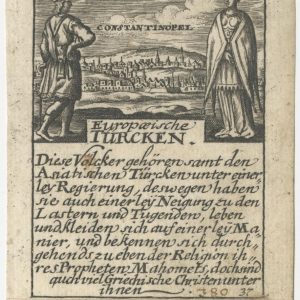 CONSTANTINOPEL
Europæische
TÜRCKEN.
Diese Völcker gehören samt den
Asiatischen Türcken unter einer,
ley Regierung, deswegen haben
sie auch einerley Neigung zu den
Lastern und Tugenden, leben
und kleiden sich auf einerley Ma,
nier, und bekennen sich durch,
gehends zu eben der Religion ih,
res Propheten Mahomets, doch sind
auch viel Griechische Christen unter
ihnen
380 37.